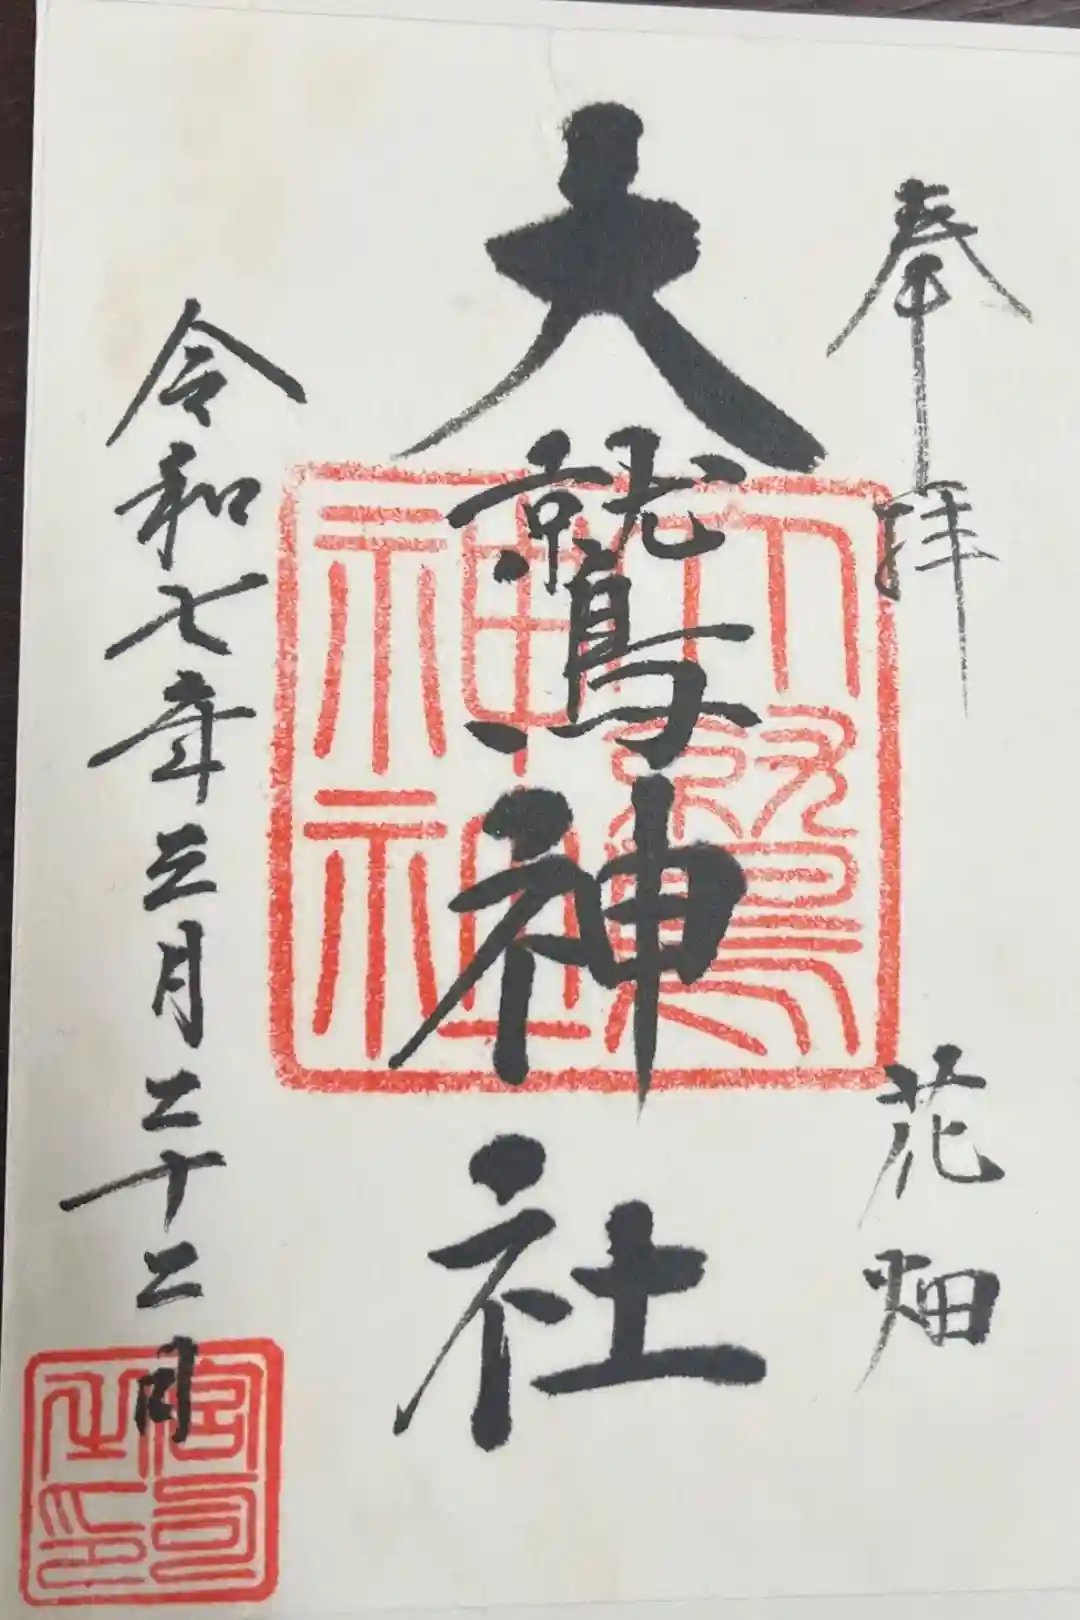 奉拝 花畑
大鷲神社
令和七年三月二十二日
大鷲神社
宮司之印